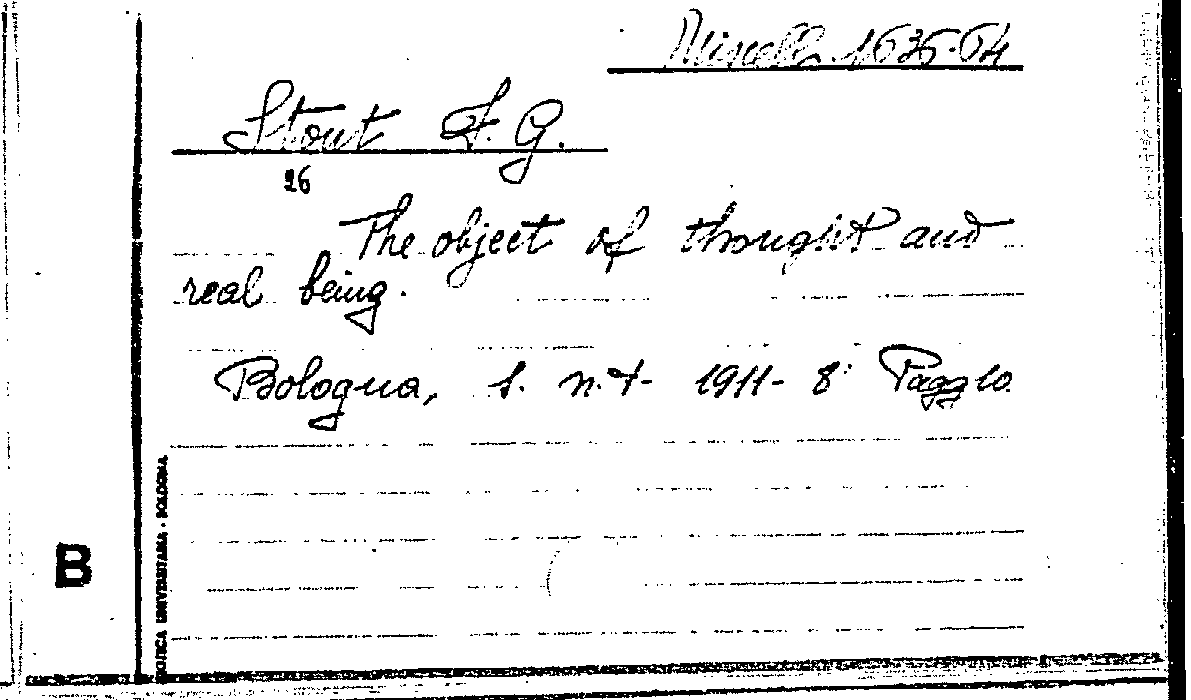 Miscell. 1635.64
Stout F. G.
26
The object of thought and
real being.
Bologna, s. n. t. 1911- 8° Pagg 10
B
BIBLIOTECA UNIVERSITARIA - BOLOGNA